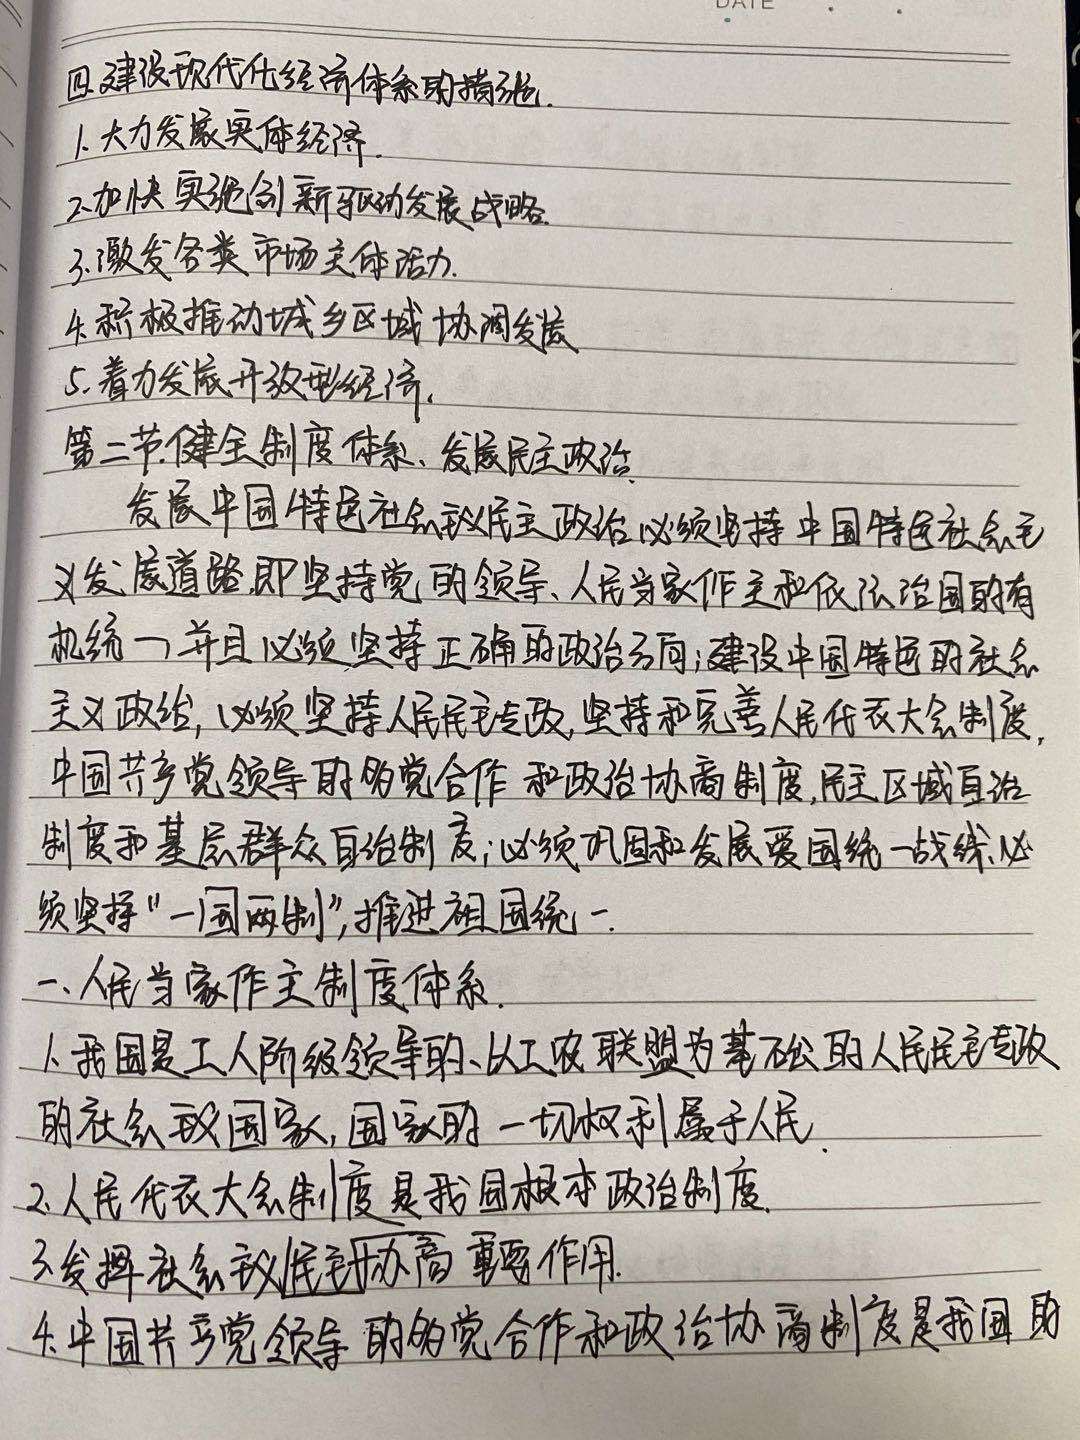 DATE
四.建设现代化经济体系的措施.
1.大力发展实体经济.
2.加快实施创新驱动发展战略.
3.激发各类市场主体活力.
4.积极推动城乡区域协调发展
5.着力发展开放型经济.
第二节.健全制度体系、发展民主政治.
发展中国特色社会主义民主政治必须坚持中国特色社会主
义发展道路,即坚持党的领导、人民当家作主和依法治国的有
机统一,并且必须坚持正确的政治方向;建设中国特色的社会
主义政治,必须坚持人民民主专政,坚持和完善人民代表大会制度,
中国共产党领导的多党合作和政治协商制度,民主区域自治
制度和基层群众自治制度;必须巩固和发展爱国统一战线、必
须坚持“一国两制”,推进祖国统一.
一、人民当家作主制度体系.
1.我国是工人阶级领导的、以工农联盟为基础的人民民主专政
的社会主义国家,国家的一切权利属于人民.
2.人民代表大会制度是我国根本政治制度.
3.发挥社会主义民主协商重要作用.
4.中国共产党领导的多党合作和政治协商制度是我国的